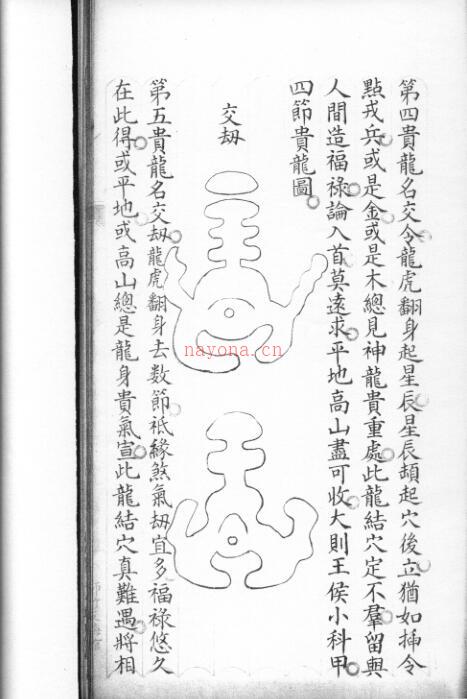 第四貴龍名交令龍虎翻身起星辰星辰頡起穴後立猶如揷令
點戎兵或是金或是木總見神龍貴重處此龍結穴定不羣留與
人間造福祿論入首莫遠求平地高山盡可收大則王侯小科甲
四節貴龍圖
交刼
第五貴龍名交刼龍虎翻身去數節祗緣煞氣刼宜多福祿悠久
在此得或平地或高山總是龍身貴氣宣此龍結穴真難遇將相
nayona.cn